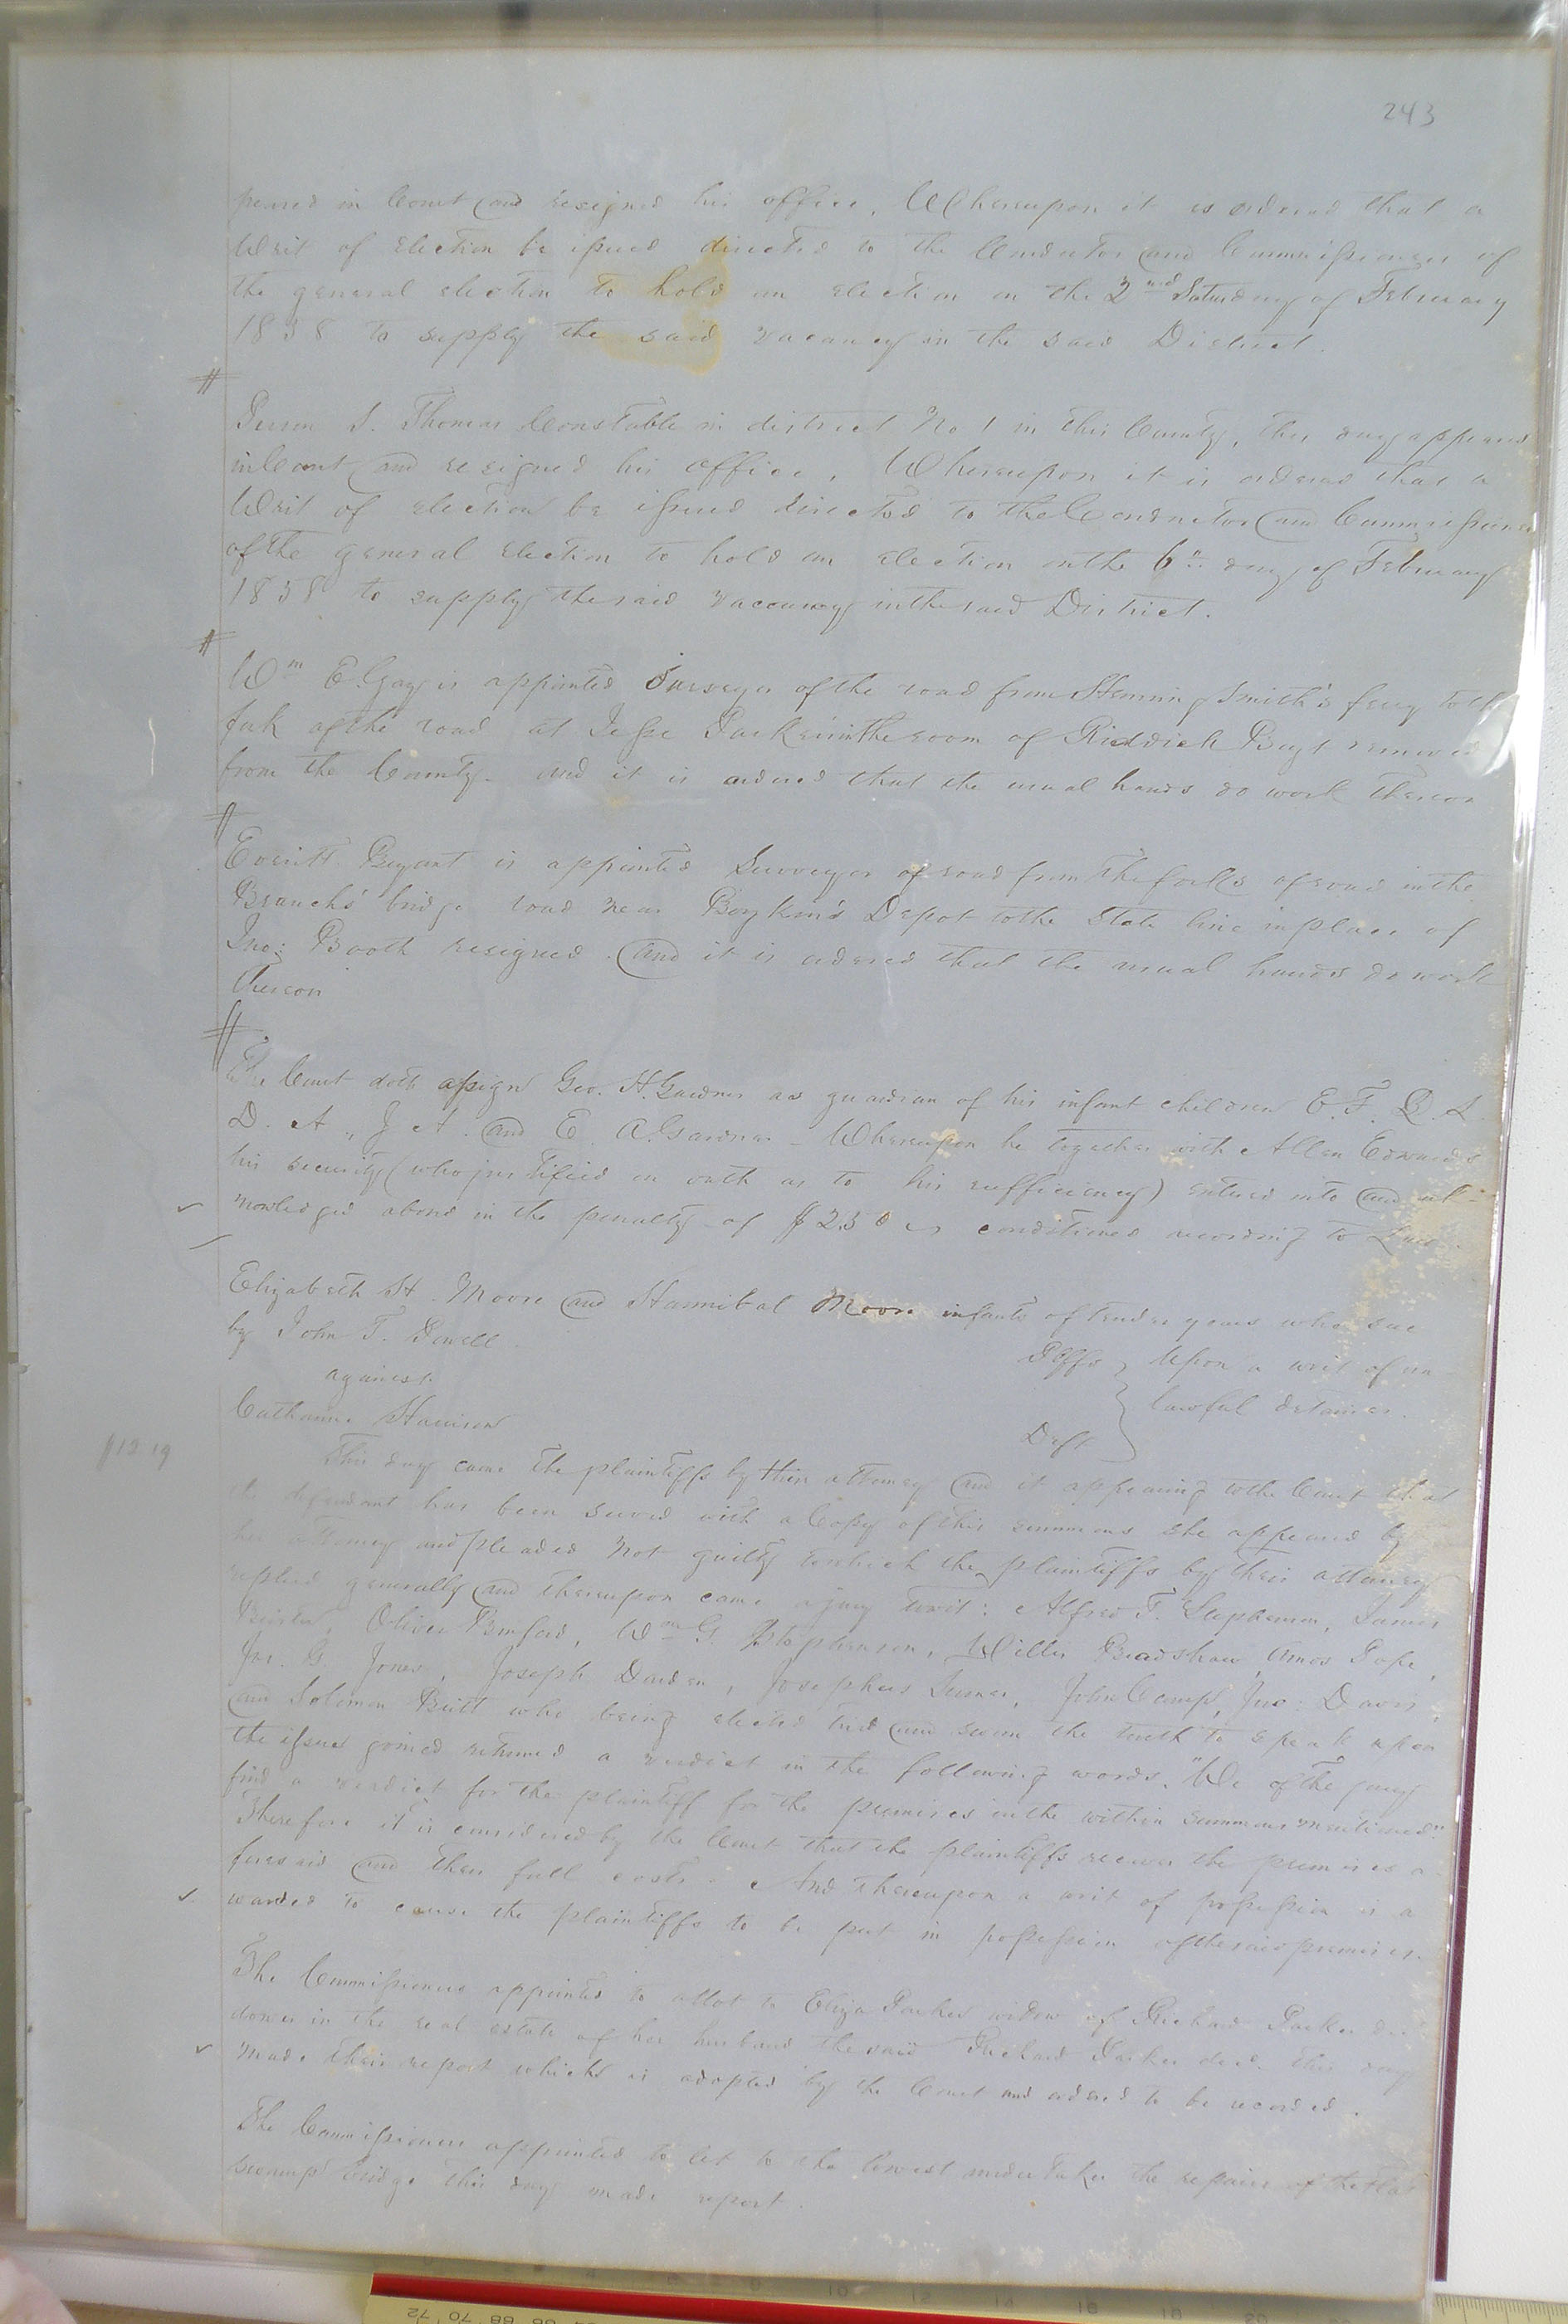 243
peared in Court and resigned his office. Whereupon it is ordered that a
Writ of Election be issued directed to the Conductor and Commissioners of
the general election to hold an election on the 2nd Saturday of February
1858 to supply the said vacancy in the said District.
S. Thomas Constable in district No 1 in this County, this day appeared
in Court and resigned his office. Whereupon it is ordered that a
Writ of election be issued directed to the Conductor and Commissioners
of the general election to hold an election on the 6th day of February
1858 to supply the said vaccancy in the said District.
Wm E. Gay is appointed Surveyor of the road from Hanning Smith's ferry to the
fork of the road at Jesse Parker's in the room of Riddick removed
from the County. and it is ordered that the usual hands do work thereon
Everitt Bryant is appointed Surveyor of road from the forks of road in the
Branch's bridge road near Boykin's Depot to the State line in place of
Jno: Booth resigned. and it is ordered that the usual hands do work
thereon
The Court doth assign Geo. H. Gardner as guardian of his infant children E. F. L.
D. A., J. A. and E. A. Gardner - Whereupon he together with Allen Edwards
his security (who justified on oath as to his sufficiency) entered into and ack-
nowledged a bond in the penalty of $250 conditioned according to Law.
Elizabeth H. Moore and Hannibal Moore infants of tender years who sue
by John T. Sewell
Plffs } Upon a writ of un
against
lawful detainer.
Catharine Harrison
Deft
$12.19
This day came the plaintiffs by their attorney and it appearing to the Court that
the defendant has been served with a Copy of this summons she appeared by
her attorney and pleaded not guilty to which the plaintiffs by their attorney
replied generally and thereupon came a jury towit: Alfred T. Stephenson, James
Oliver Binford, Wm G. Stephenson, Willis Bradshaw, Amos Pope,
Jas. G. Jones, Joseph Darden, Josephus Turner, John Camp, Jno: Davis,
and Solomon Britt who being elected tried and sworn the truth to speak upon
the issue joined returned a verdict in the following words. "We of the jury
find a verdict for the plaintiff for the premises in the within summons mentioned."
Therefore it is considered by the Court that the plaintiffs recover the premises a-
foresaid and their full costs. And thereupon a writ of possession is a
warded to cause the plaintiffs to be put in possession of the said premises.
The Commissioners appointed to allot to Eliza Parker widow of Richard Parker dec
dower in the real estate of her husband the said Richard Parker decd. this day
made their report which is adopted by the Court and ordered to be recorded.
The Commissioners appointed to let to the lowest undertaker the repairs of the Flat
swamp bridge this day made report.